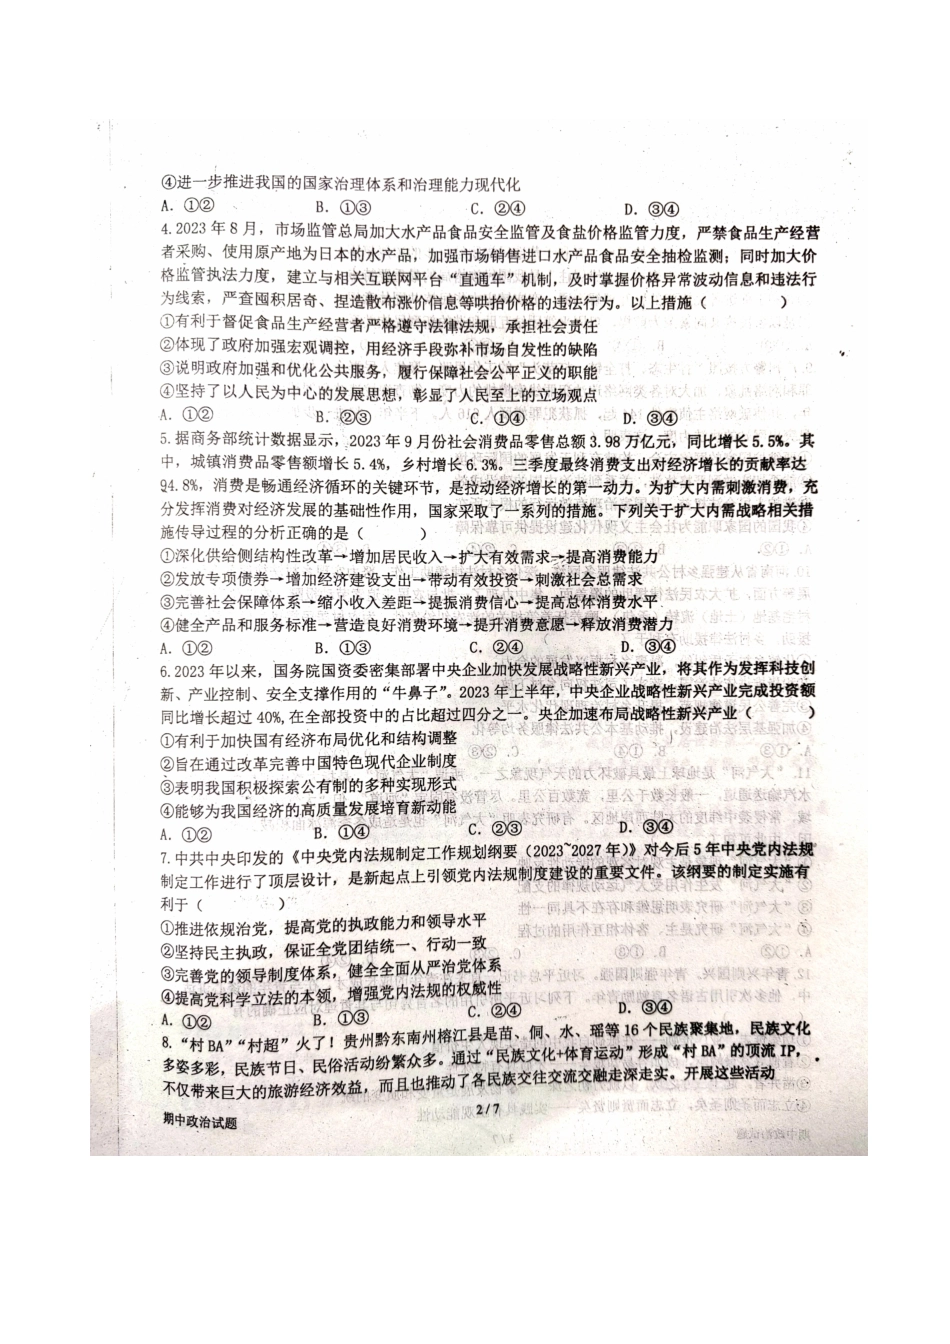 ④进一步推进我国的国家治理体系和治理能力现代化
A. ①② B. ①③ C. ②④ D. ③④
4.2023 年 8 月，市场监管总局加大水产品食品安全监管及食盐价格监管力度，严禁食品生产经营
者采购、使用原产地为日本的水产品，加强市场销售进口水产品食品安全抽检监测；同时加大价
格监管执法力度，建立与相关互联网平台“直通车”机制，及时掌握价格异常波动信息和违法行
为线索，严查囤积居奇、捏造散布涨价信息等哄抬价格的违法行为。以上措施（ ）
①有利于督促食品生产经营者严格遵守法律法规，承担社会责任
②体现了政府加强宏观调控，用经济手段弥补市场自发性的缺陷
③说明政府加强和优化公共服务，履行保障社会公平正义的职能
④坚持了以人民为中心的发展思想，彰显了人民至上的立场观点
A. ①② B. ②③ C. ①④ D. ③④
5.据商务部统计数据显示，2023 年 9 月份社会消费品零售总额 3.98 万亿元，同比增长 5.5%。其
中，城镇消费品零售额增长 5.4%，乡村增长 6.3%。三季度最终消费支出对经济增长的贡献率达
94.8%，消费是畅通经济循环的关键环节，是拉动经济增长的第一动力。为扩大内需刺激消费，充
分发挥消费对经济发展的基础性作用，国家采取了一系列的措施。下列关于扩大内需战略相关措
施传导过程的分析正确的是（ ）
①深化供给侧结构性改革→增加居民收入→扩大有效需求→提高消费能力
②发放专项债券→增加经济建设支出→带动有效投资→刺激社会总需求
③完善社会保障体系→缩小收入差距→提振消费信心→提高总体消费水平
④健全产品和服务标准→营造良好消费环境→提升消费意愿→释放消费潜力
A. ①② B. ①③ C. ②④ D. ③④
6.2023 年以来，国务院国资委密集部署中央企业加快发展战略性新兴产业，将其作为发挥科技创
新、产业控制、安全支撑作用的“牛鼻子”。2023 年上半年，中央企业战略性新兴产业完成投资额
同比增长超过 40%,在全部投资中的占比超过四分之一。央企加速布局战略性新兴产业（ ）
①有利于加快国有经济布局优化和结构调整
②旨在通过改革完善中国特色现代企业制度
③表明我国积极探索公有制的多种实现形式
④能够为我国经济的高质量发展培育新动能
A. ①② B. ①④ C. ②③ D. ③④
7.中共中央印发的《中央党内法规制定工作规划纲要（2023~2027 年）》对今后 5 年中央党内法规
制定工作进行了顶层设计，是新起点上引领党内法规制度建设的重要文件。该纲要的制定实施有
利于（ ）
①推进依规治党，提高党的执政能力和领导水平
②坚持民主执政，保证全党团结统一、行动一致
③完善党的领导制度体系，健全全面从严治党体系
④提高党科学立法的本领，增强党内法规的权威性
A. ①② B. ①③ C. ②④ D. ③④
8. “村 BA”“村超”火了！贵州黔东南州榕江县是苗、侗、水、瑶等 16 个民族聚集地，民族文化
多姿多彩，民族节日、民俗活动纷繁众多。通过“民族文化+体育运动”形成“村 BA”的顶流 IP，
不仅带来巨大的旅游经济效益，而且也推动了各民族交往交流交融走深走实。开展这些活动
2 / 7
期中政治试题